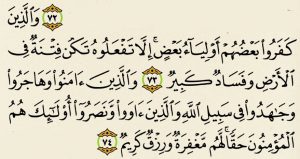 ٧٢ وَٱلَّذِينَ
كَفَرُوا۟ بَعْضُهُمْ أَوْلِيَآءُ بَعْضٍ ۚ إِلَّا تَفْعَلُوهُ تَكُن فِتْنَةٌ فِى
ٱلْأَرْضِ وَفَسَادٌ كَبِيرٌ ٧٣ وَٱلَّذِينَ ءَامَنُوا۟ وَهَاجَرُوا۟
وَجَـٰهَدُوا۟ فِى سَبِيلِ ٱللَّهِ وَٱلَّذِينَ ءَاوَوا۟ وَّنَصَرُوٓا۟ أُو۟لَـٰٓئِكَ هُمُ
ٱلْمُؤْمِنُونَ حَقًّا ۚ لَّهُم مَّغْفِرَةٌ وَرِزْقٌ كَرِيمٌ ٧٤